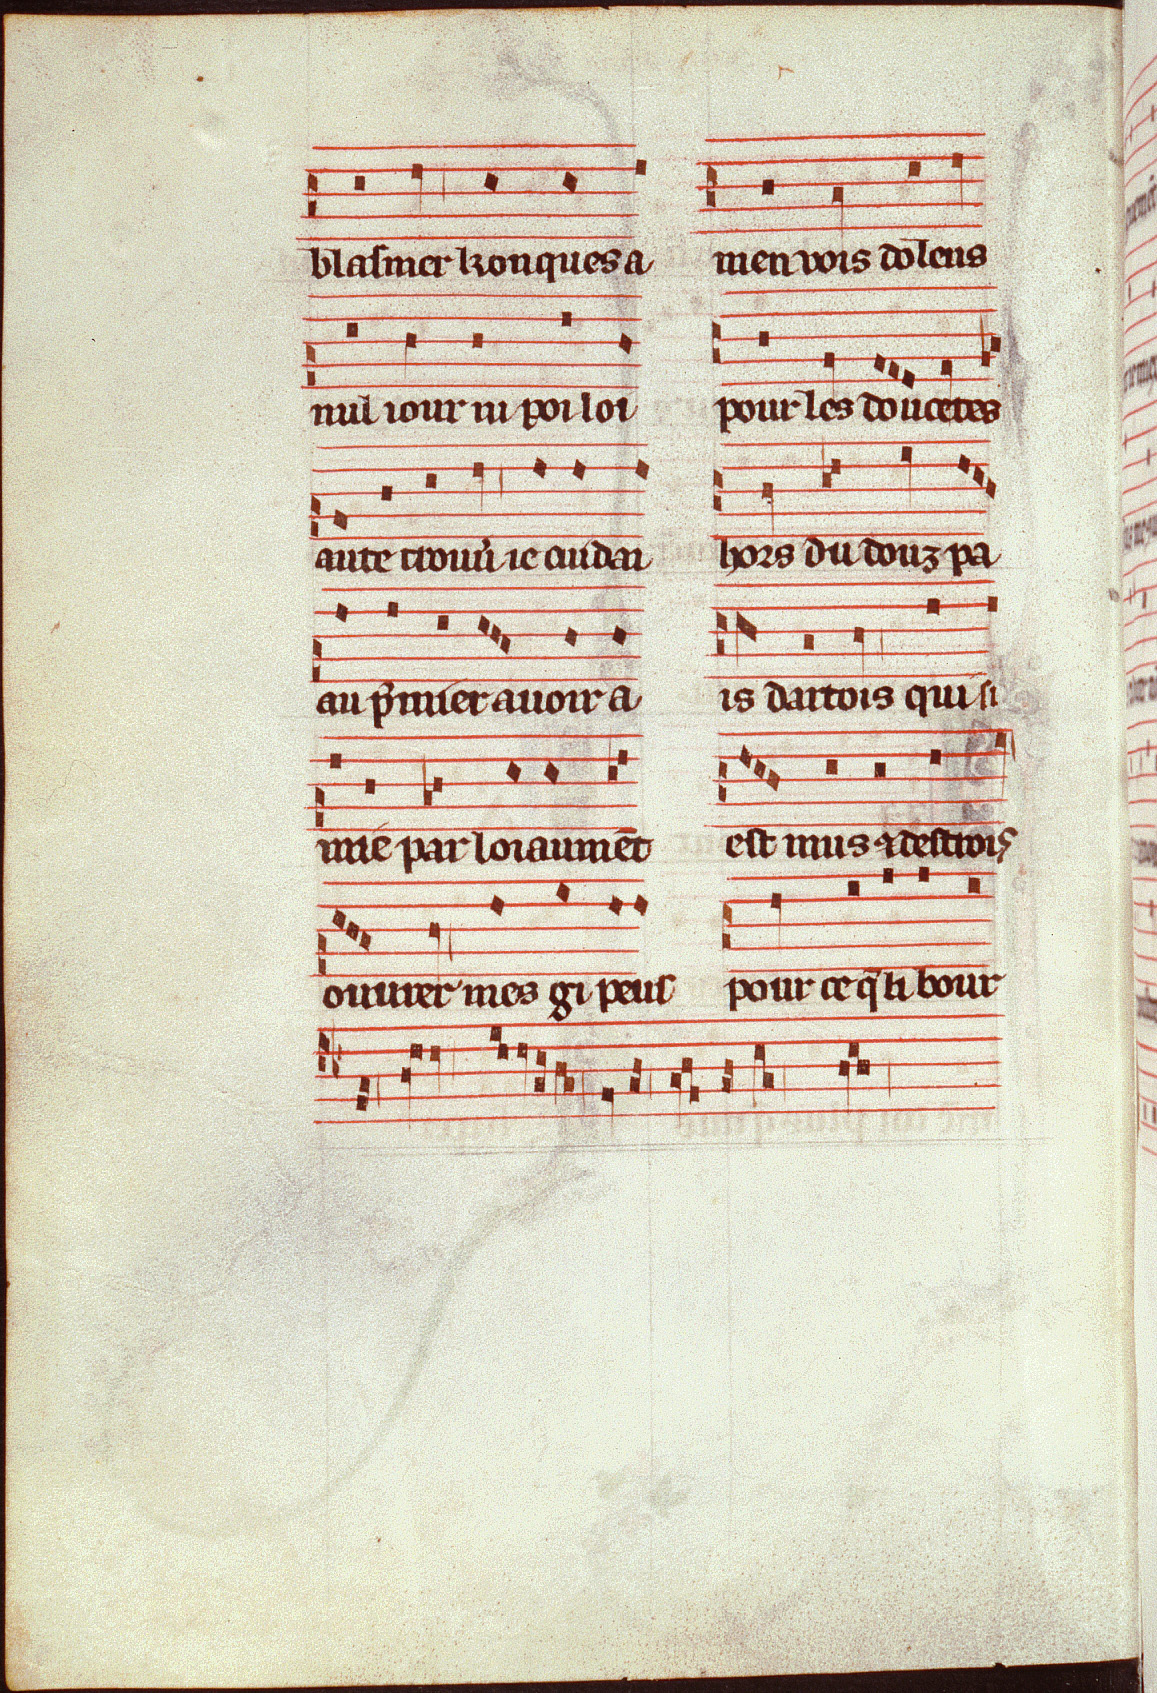 blasmer konques a
nul iour ni poi loi
aute trouũ ie cuidai
au p̃mier auoir a
mie par loiaumẽt
ouurer mes gi peus
men vois dolens
pour les doucetes
hors du douz pa
is dartois qui si
est mus ⁊ destrois
pour ce q̃ li bour